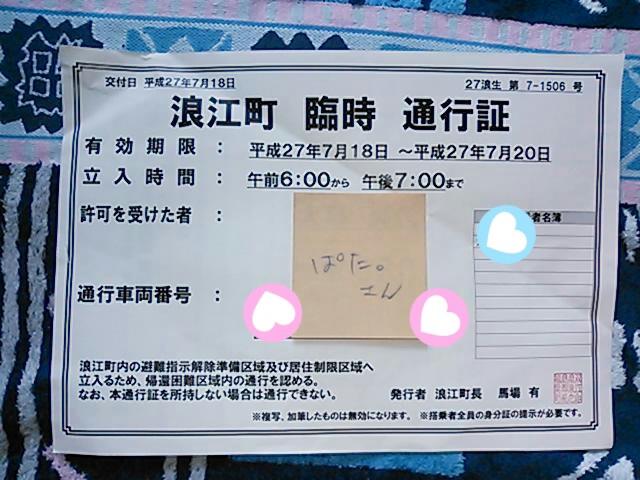 交付日 平成27年7月18日
27浪生 第 7-1506 号
浪江町 臨時 通行証
有効期限 : 平成27年7月18日 ～平成27年7月20日
立入時間 : 午前6:00から 午後7:00まで
許可を受けた者 :
者名簿
ぱた。
さん
通行車両番号 :
浪江町内の避難指示解除準備区域及び居住制限区域へ
立入るため、帰還困難区域内の通行を認める。
なお、本通行証を所持しない場合は通行できない。
発行者 浪江町長 馬場 有
※複写、加筆したものは無効になります。 ※搭乗者全員の身分証の提示が必要です。